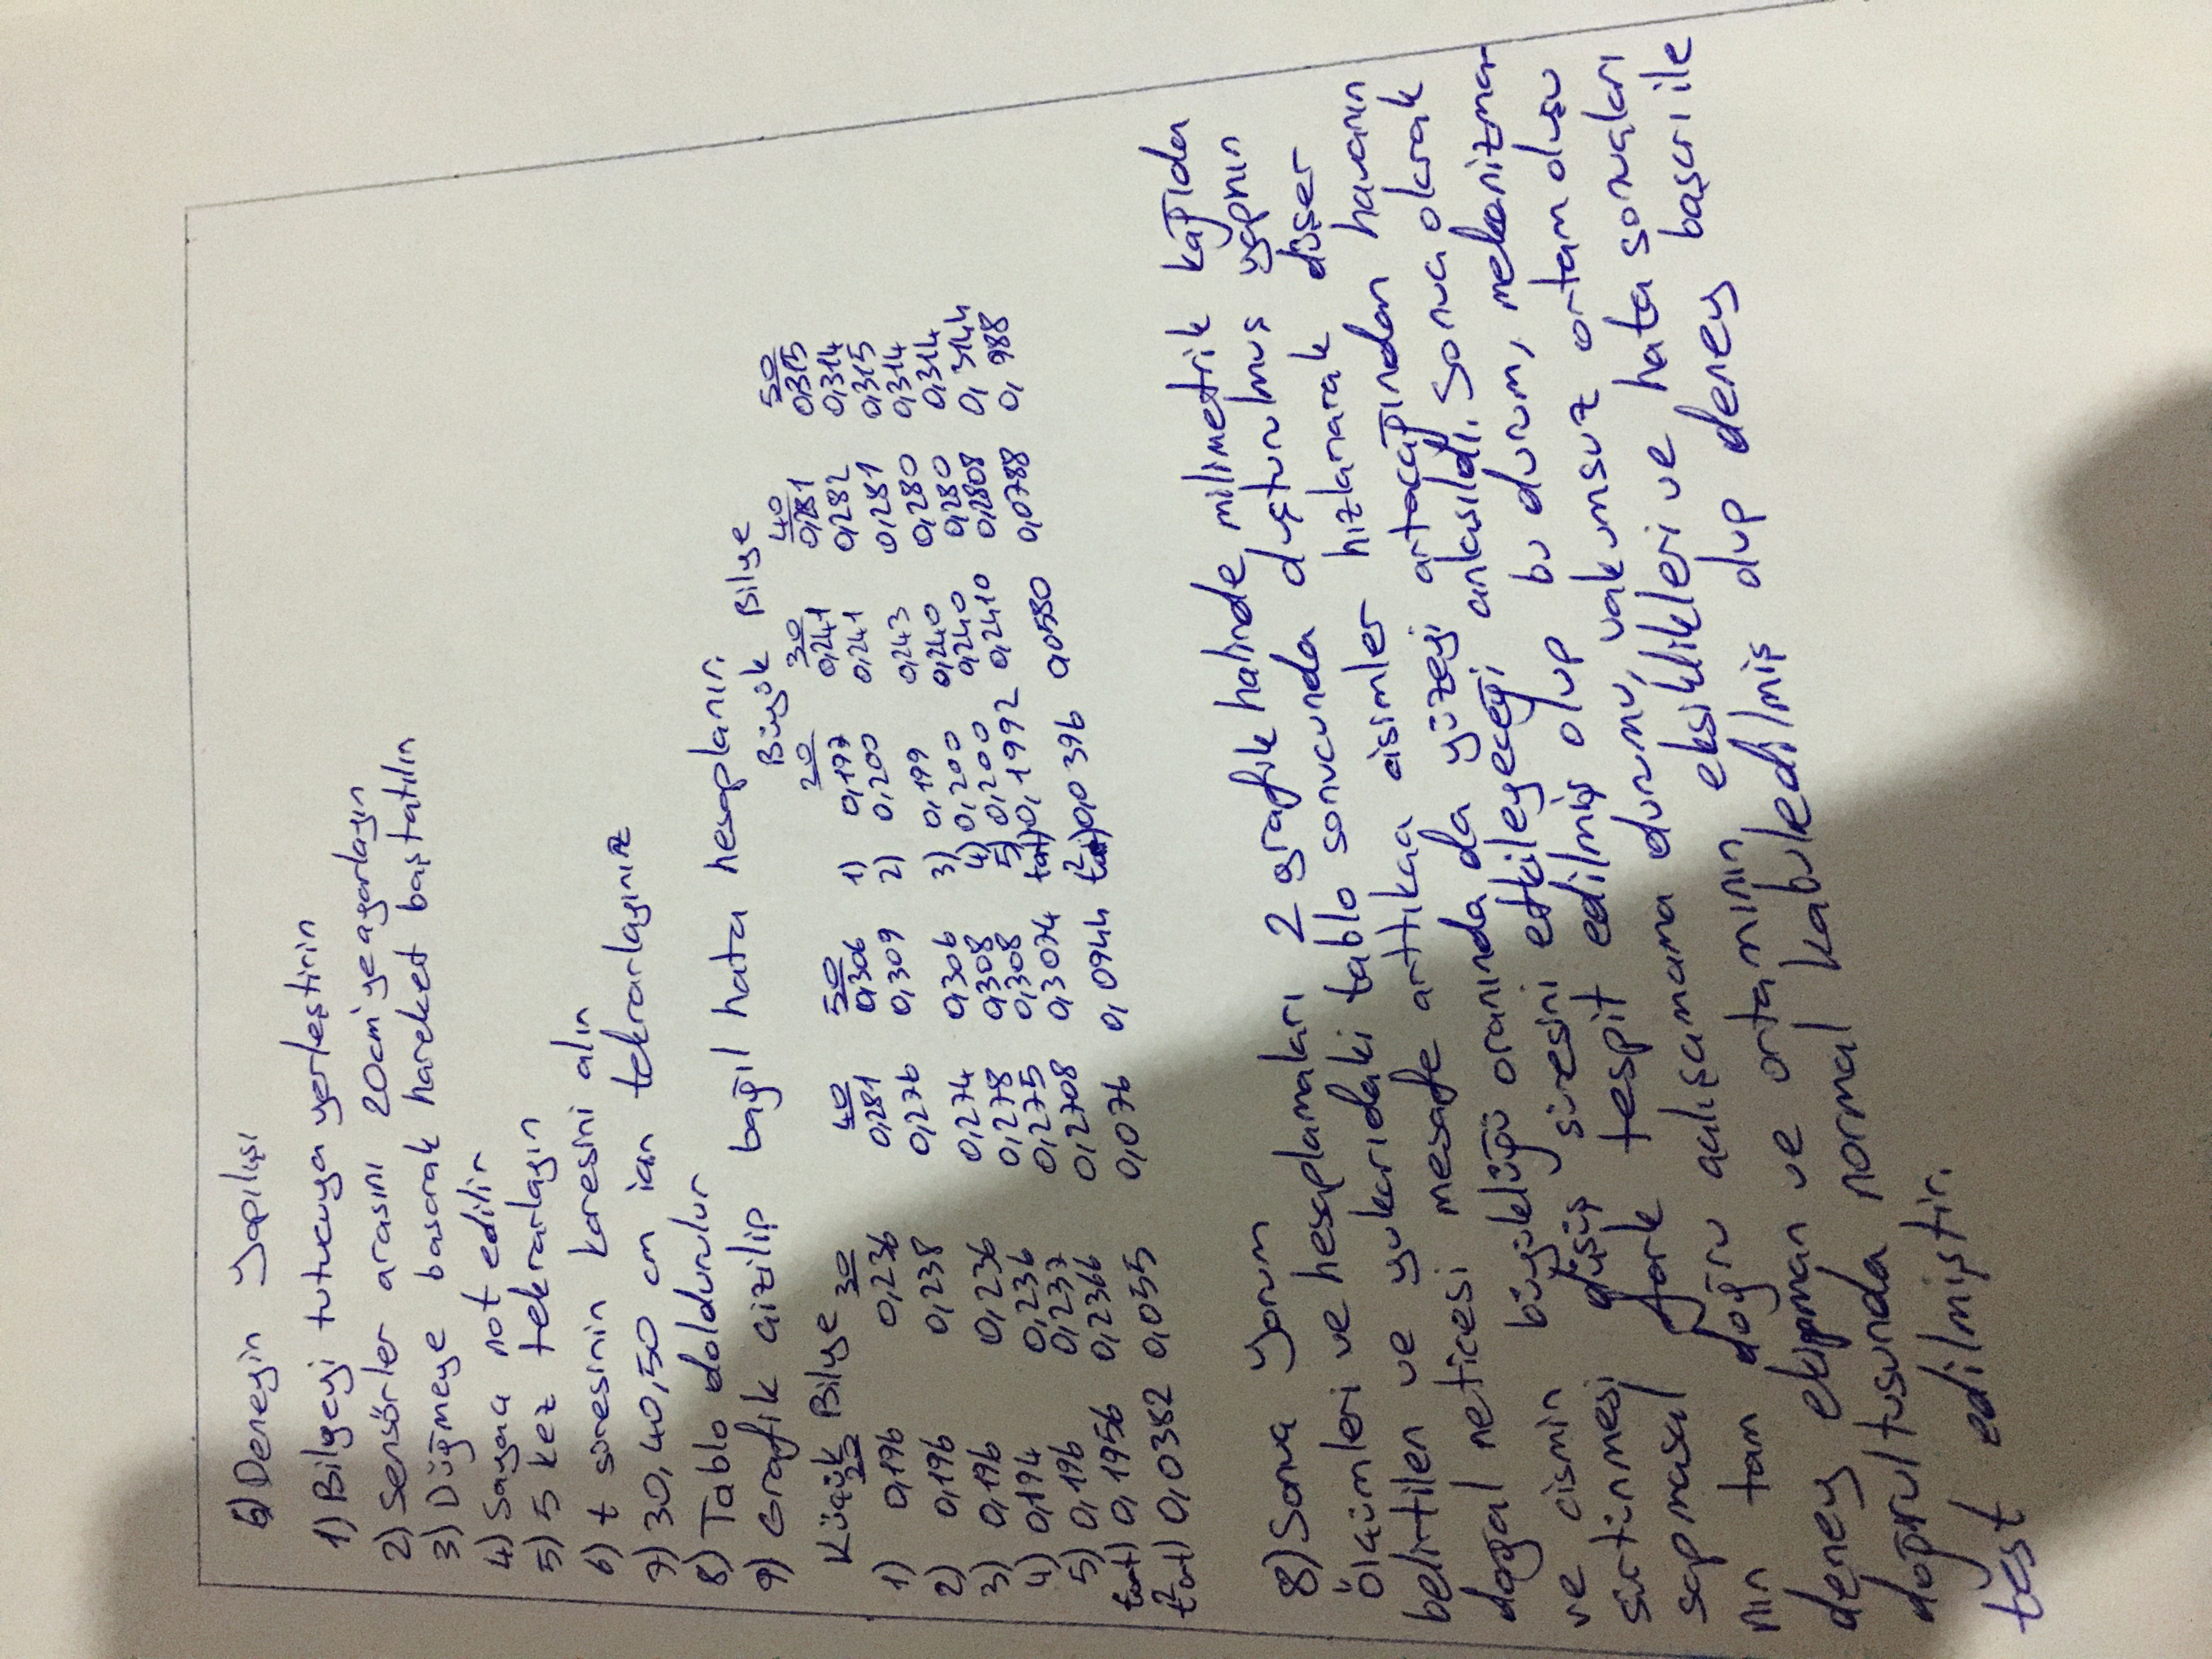 6) Deneyin Yapılışı
1) Bilyeyi tutucuya yerleştirin
2) Sensörler arasını 20cm'ye ayarlayın
3) Düğmeye basarak hareket baştatılın
4) Sayacı not edilir
5) 5 kez tekrarlayın
6) t süresinin karesini alın
7) 30,40,50 cm için tekrarlayınız
8) Tablo doldurulur
9) Grafik çizilip bağıl hata hesaplanır.
Küçük Bilye
20 30 40 50
1) 0,196 0,236 0,281 0,306
2) 0,196 0,238 0,276 0,309
3) 0,196 0,236 0,274 0,306
4) 0,194 0,236 0,278 0,308
5) 0,196 0,237 0,275 0,308
tort) 0,1956 0,2366 0,2708 0,3074
t²ort) 0,0382 0,055 0,076 0,0944
Büyük Bilye
20 30 40 50
1) 0,197 0,241 0,281 0,315
2) 0,200 0,241 0,282 0,314
3) 0,199 0,243 0,281 0,315
4) 0,200 0,240 0,280 0,314
5) 0,200 0,240 0,280 0,314
0,1992 0,2410 0,2808 0,3144
0,0396 0,0580 0,0788 0,988
8) Sonuç Yorum
Ölçümleri ve hesaplamaları 2 grafik halinde milimetrik kağıda
belirtilen ve yukarıdaki tablo sonucunda oluşturulmuş yapnın
doğal neticesi mesafe arttıkça cisimler hızlanarak düşer
ve cismin büyüklüğü oranında da yüzeyi artacağından havanın
sürtünmesi düşüş süresini etkileyeceği anlaşıldı. Sonuç olarak
sapmasal fark tespit edilmiş olup bu durum, mekanizma-
nın tam doğru çalışamama durumu, vakumsuz ortam oluşu
deney ekipman ve ortamının eksiklikleri ve hata sonuçları
doğrultusunda normal kabuledilmiş olup deney başarı ile
test edilmiştir.